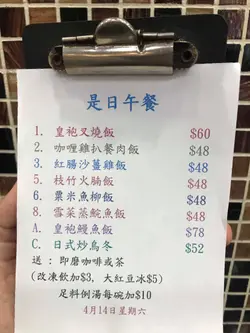 是日午餐
1. 皇袍叉燒飯 $60
2. 咖喱雞扒餐肉飯 $48
3. 紅腸沙薑雞飯 $48
5. 枝竹火腩飯 $48
6. 粟米魚柳飯 $48
8. 雪菜蒸鯇魚飯 $48
A. 皇袍鰻魚飯 $78
C. 日式炒烏冬 $52
送 : 即磨咖啡或茶
(改凍飲加$3, 大紅豆冰$5)
足料例湯每碗加$10
4月14日星期六